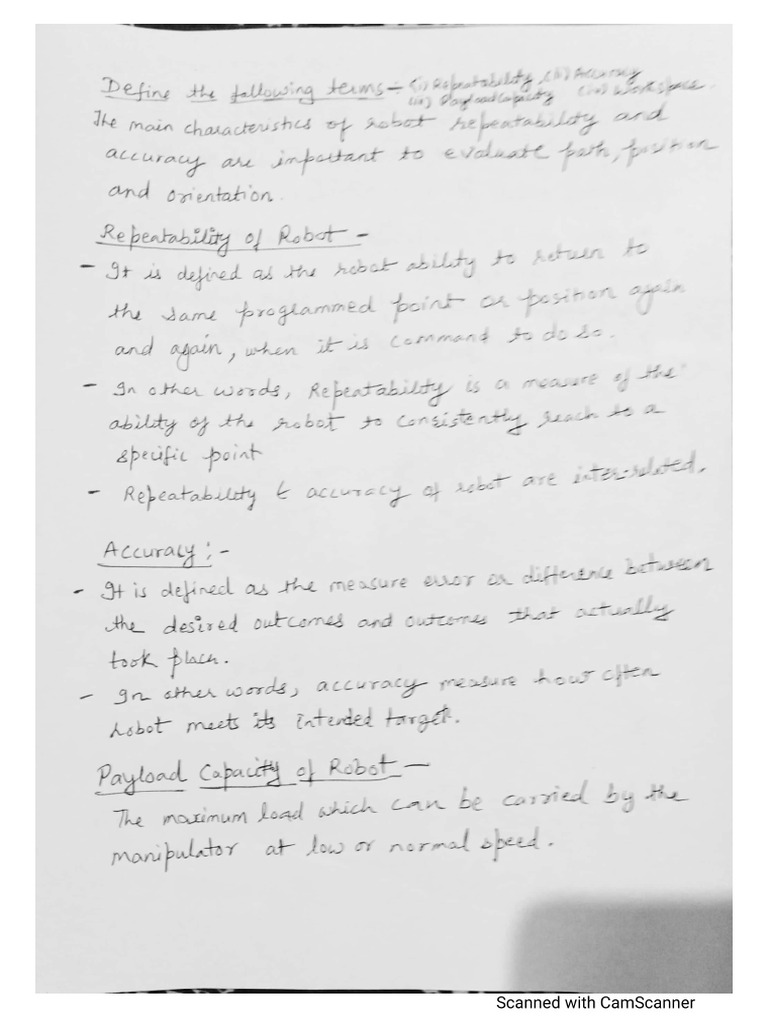 Define the following terms - (i) Repeatability (ii) Accuracy
(iii) Payload capacity (iv) Workspace.
The main characteristics of robot repeatability and
accuracy are important to evaluate path, position
and orientation.
Repeatability of Robot -
- It is defined as the robot ability to return to
the same programmed point or position again
and again, when it is command to do so.
- In other words, Repeatability is a measure of the
ability of the robot to consistently reach to a
specific point
- Repeatability & accuracy of robot are inter-related.
Accuracy :-
- It is defined as the measure error or difference between
the desired outcomes and outcomes that actually
took place.
- In other words, accuracy measure how often
robot meets its intended target.
Payload Capacity of Robot -
The maximum load which can be carried by the
manipulator at low or normal speed.
Scanned with CamScanner